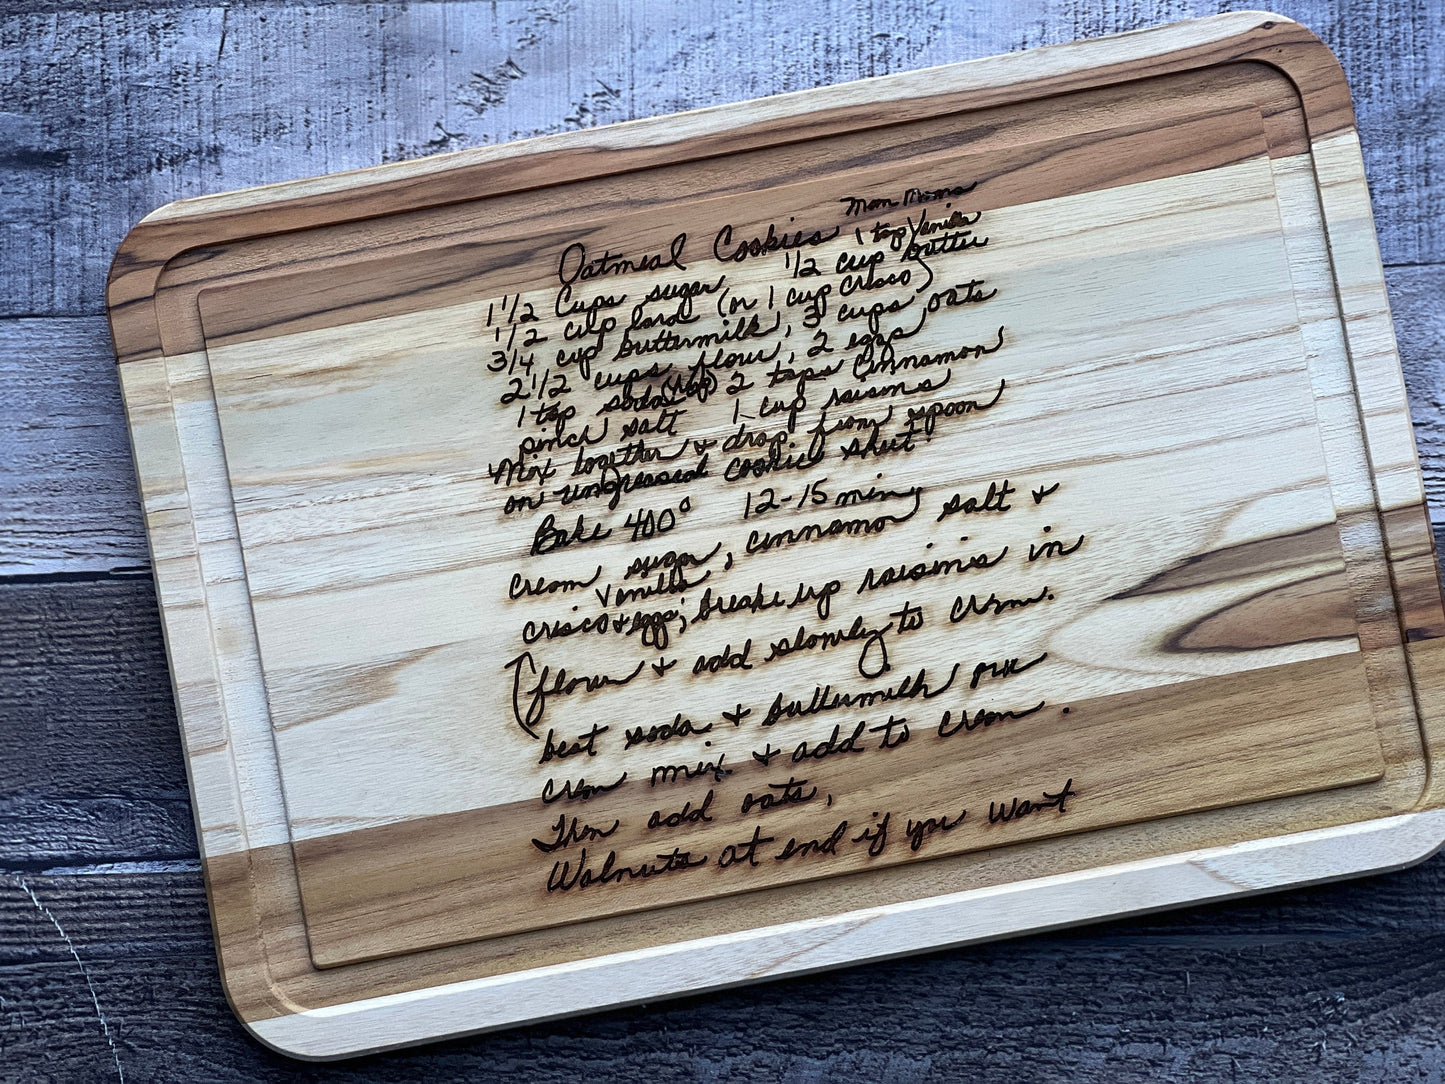 Oatmeal Cookies Mom Moms
1 tsp Vanilla
1 1/2 Cups sugar 1/2 cup butter
1/2 cup lard (or 1 cup Crisco)
3/4 cup buttermilk, 3 cups oats
2 1/2 cups flour, 2 eggs
1 tsp soda 2 tsps Cinnamon
pinch salt 1 cup raisins
Mix together & drop from spoon
on ungreased cookie sheet.
Bake 400° 12-15 min,
cream sugar, cinnamon salt &
Vanilla
crisco & eggs; break up raisins in
(flour & add slowly to crem.
beat soda & buttermilk
crem mix & add to cream.
Then add oats,
Walnuts at end if you want